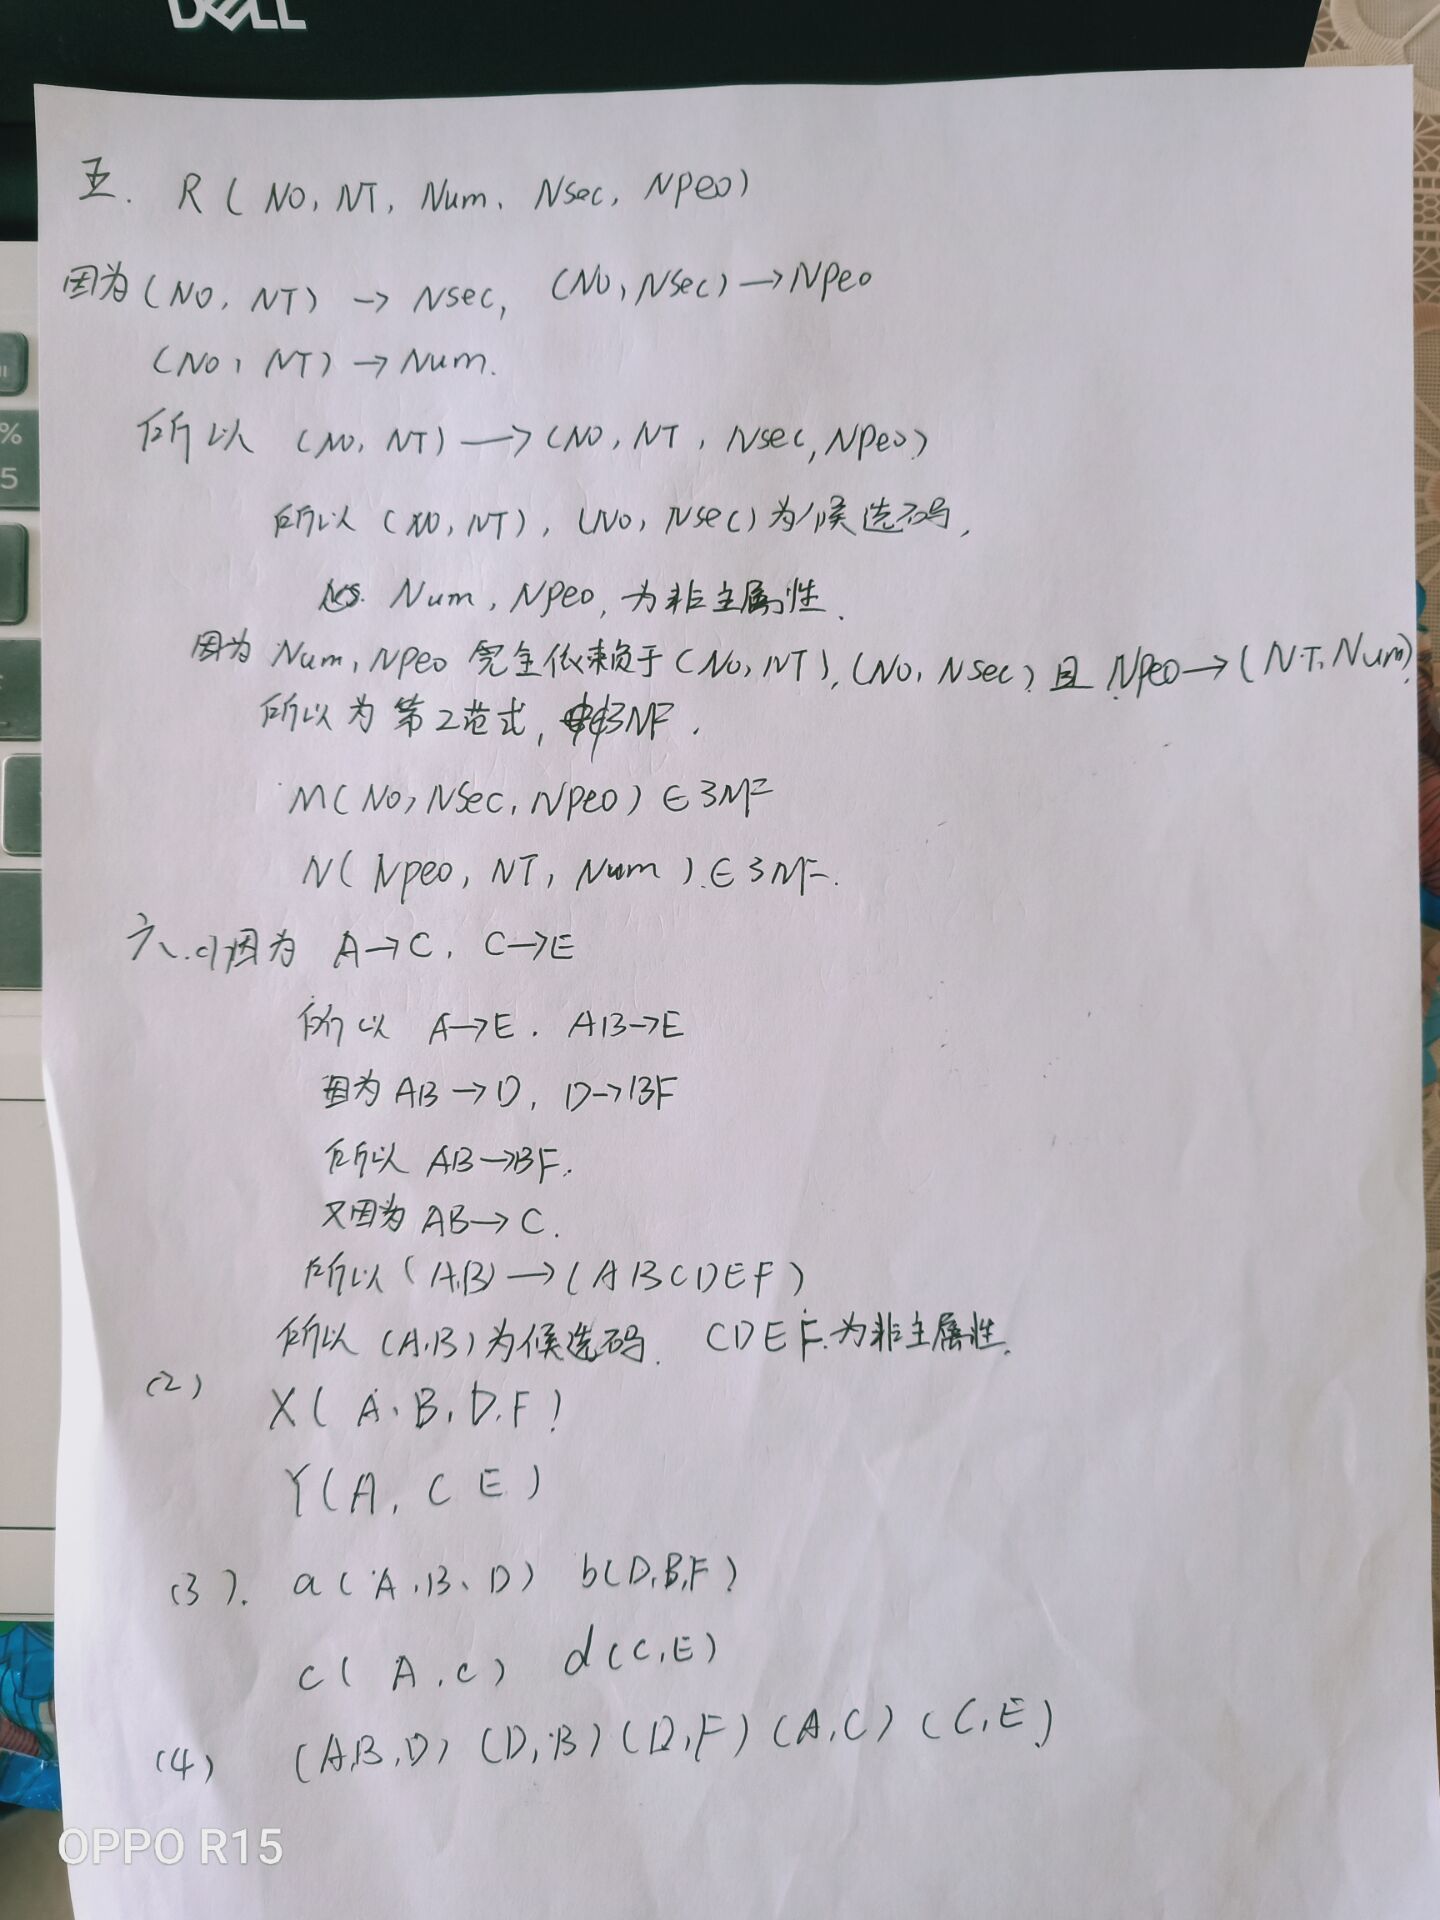 DELL
五. R ( No, NT, Num, Nsec, Npeo)
因为 (No, NT) → Nsec, (No, Nsec) → Npeo
(No, NT) → Num.
所以 (No, NT) → (No, NT, Nsec, Npeo)
所以 (No, NT), (No, Nsec) 为候选码,
Num, Npeo, 为非主属性.
因为 Num, Npeo 完全依赖于 (No, NT), (No, Nsec) 且 Npeo → (NT, Num)
所以为第2范式, 3NF.
M(No, Nsec, Npeo) ∈ 3NF
N( Npeo, NT, Num ) ∈ 3NF.
六、(1)因为 A→C, C→E
所以 A→E. AB→E
因为 AB→D, D→BF
所以 AB→BF.
又因为 AB→C.
所以 (A,B) → (ABCDEF)
所以 (A,B) 为候选码. CDEF 为非主属性.
(2) X( A, B, D, F )
Y(A, C E )
(3). a( A, B、D) b(D,B,F)
c( A, C ) d(C,E)
(4) (A,B,D) (D,B) (D,F) (A,C) (C,E)
OPPO R15
%
5